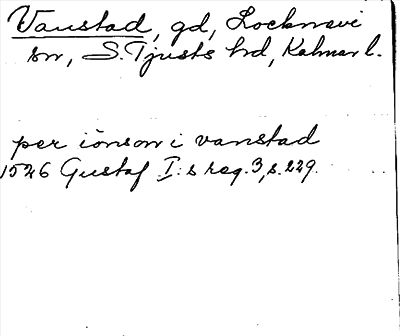 Vanstad, gd, Locknevi
sn, S. Tjusts hrd, Kalmar l.
per iönson i vanstad
1526 Gustaf I:s reg. 3, s. 229.